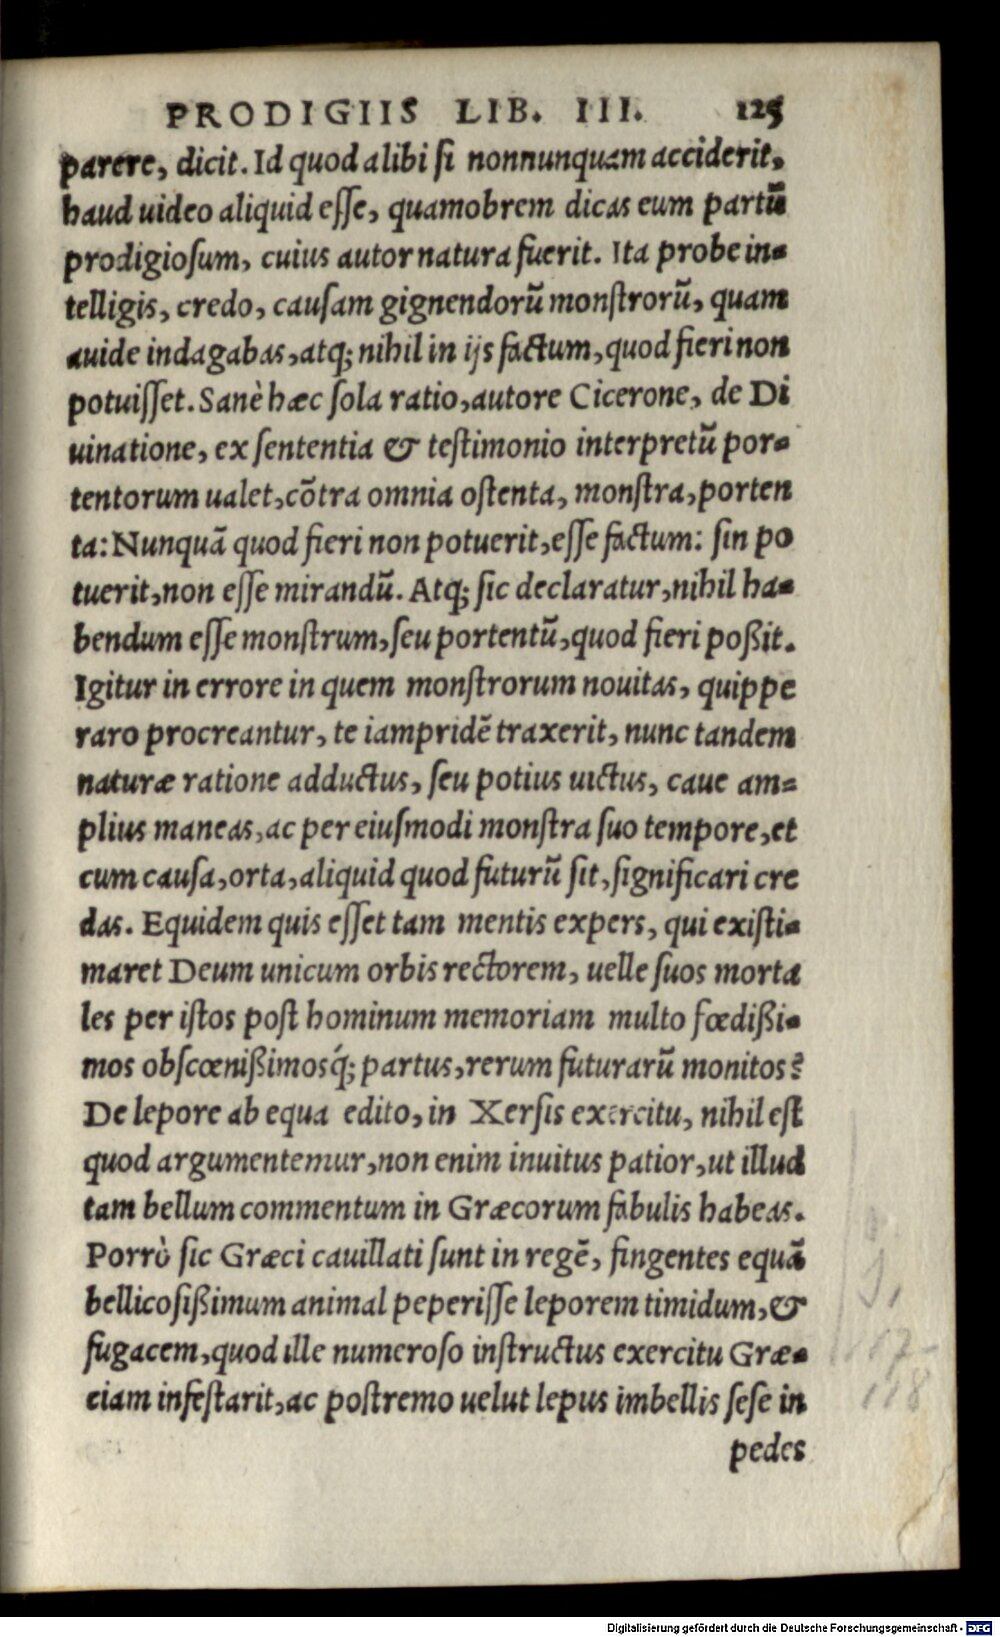 PRODIGIIS LIB. III. 125
parere, dicit. Id quod alibi si nonnunquam acciderit,
haud uideo aliquid esse, quamobrem dicas eum partū
prodigiosum, cuius autor natura fuerit. Ita probe in-
telligis, credo, causam gignendorū monstrorū, quam
auide indagabas, atq; nihil in ijs factum, quod fieri non
potuisset. Sanè hæc sola ratio, autore Cicerone, de Di
uinatione, ex sententia & testimonio interpretū por-
tentorum ualet, cōtra omnia ostenta, monstra, porten
ta: Nunquā quod fieri non potuerit, esse factum: sin po
tuerit, non esse mirandū. Atq; sic declaratur, nihil ha-
bendum esse monstrum, seu portentū, quod fieri poßit.
Igitur in errore in quem monstrorum nouitas, quippe
raro procreantur, te iampridē traxerit, nunc tandem
naturæ ratione adductus, seu potius uictus, caue am-
plius maneas, ac per eiusmodi monstra suo tempore, et
cum causa, orta, aliquid quod futurū sit, significari cre
das. Equidem quis esset tam mentis expers, qui existi-
maret Deum unicum orbis rectorem, uelle suos morta
les per istos post hominum memoriam multo fœdißi-
mos obscœnißimosq́; partus, rerum futurarū monitos?
De lepore ab equa edito, in Xersis exercitu, nihil est
quod argumentemur, non enim inuitus patior, ut illud
tam bellum commentum in Græcorum fabulis habeas.
Porrò sic Græci cauillati sunt in regē, fingentes equā
bellicosißimum animal peperisse leporem timidum, &
fugacem, quod ille numeroso instructus exercitu Græ-
ciam infestarit, ac postremo uelut lepus imbellis sese in
pedes
118
Digitalisierung gefördert durch die Deutsche Forschungsgemeinschaft - DFG